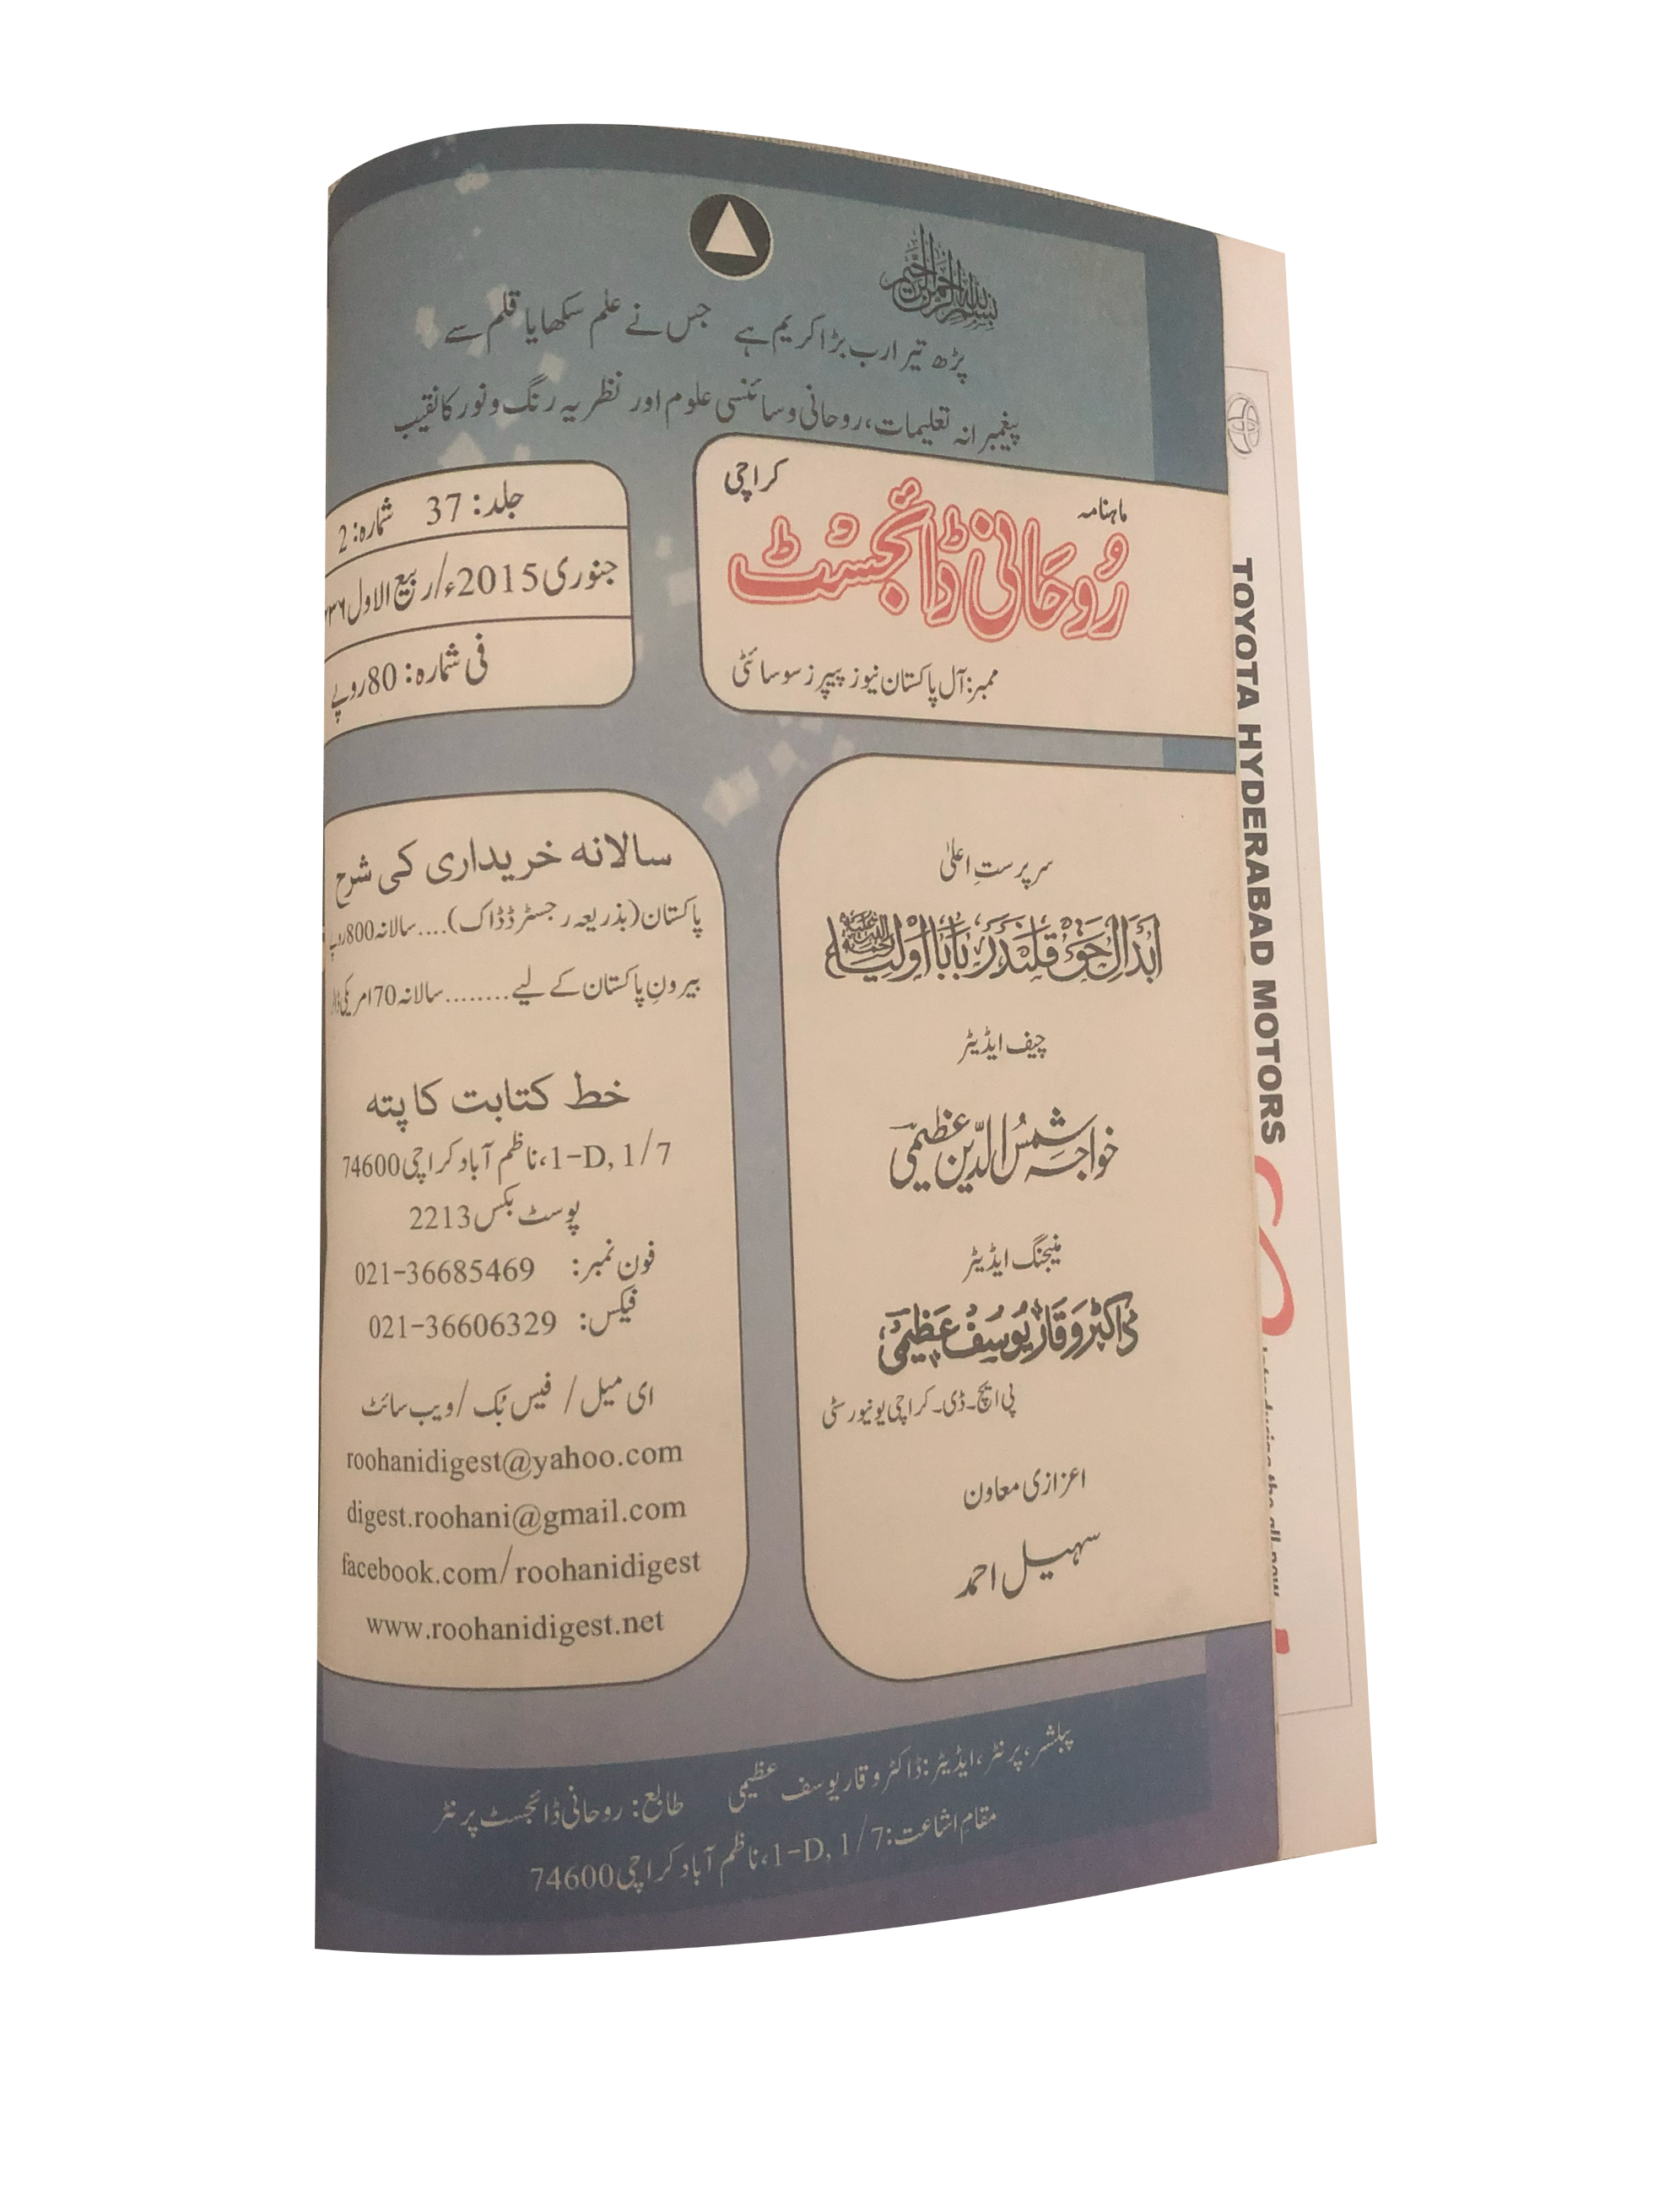 بسم اللہ الرحمن الرحیم
پڑھ تیرا رب بڑا کریم ہے جس نے علم سکھایا قلم سے
پیغمبرانہ تعلیمات، روحانی و سائنسی علوم اور نظریہ رنگ و نور کا نقیب
ماہنامہ
کراچی
رُوحَانی ڈائجسٹ
ممبر: آل پاکستان نیوز پیپرز سوسائٹی
جلد: 37 شمارہ: 2
جنوری 2015ء/ربیع الاول
فی شمارہ: 80 روپے
سرپرستِ اعلیٰ
ابدال حق قلندر بابا اولیاء
چیف ایڈیٹر
خواجہ شمس الدین عظیمی
منیجنگ ایڈیٹر
ڈاکٹر وقار یوسف عظیمی
پی ایچ۔ڈی۔ کراچی یونیورسٹی
اعزازی معاون
سہیل احمد
سالانہ خریداری کی شرح
پاکستان (بذریعہ رجسٹرڈ ڈاک)....سالانہ 800 روپے
بیرونِ پاکستان کے لیے........سالانہ 70 امریکی
خط کتابت کا پتہ
1-D, 1/7، ناظم آباد کراچی 74600
پوسٹ بکس 2213
فون نمبر: 021-36685469
فیکس: 021-36606329
ای میل / فیس بُک / ویب سائٹ
roohanidigest@yahoo.com
digest.roohani@gmail.com
facebook.com/roohanidigest
www.roohanidigest.net
پبلشر، پرنٹر، ایڈیٹر: ڈاکٹر وقار یوسف عظیمی طابع: روحانی ڈائجسٹ پرنٹر
مقامِ اشاعت: 1-D, 1/7، ناظم آباد کراچی 74600
TOYOTA HYDERABAD MOTORS